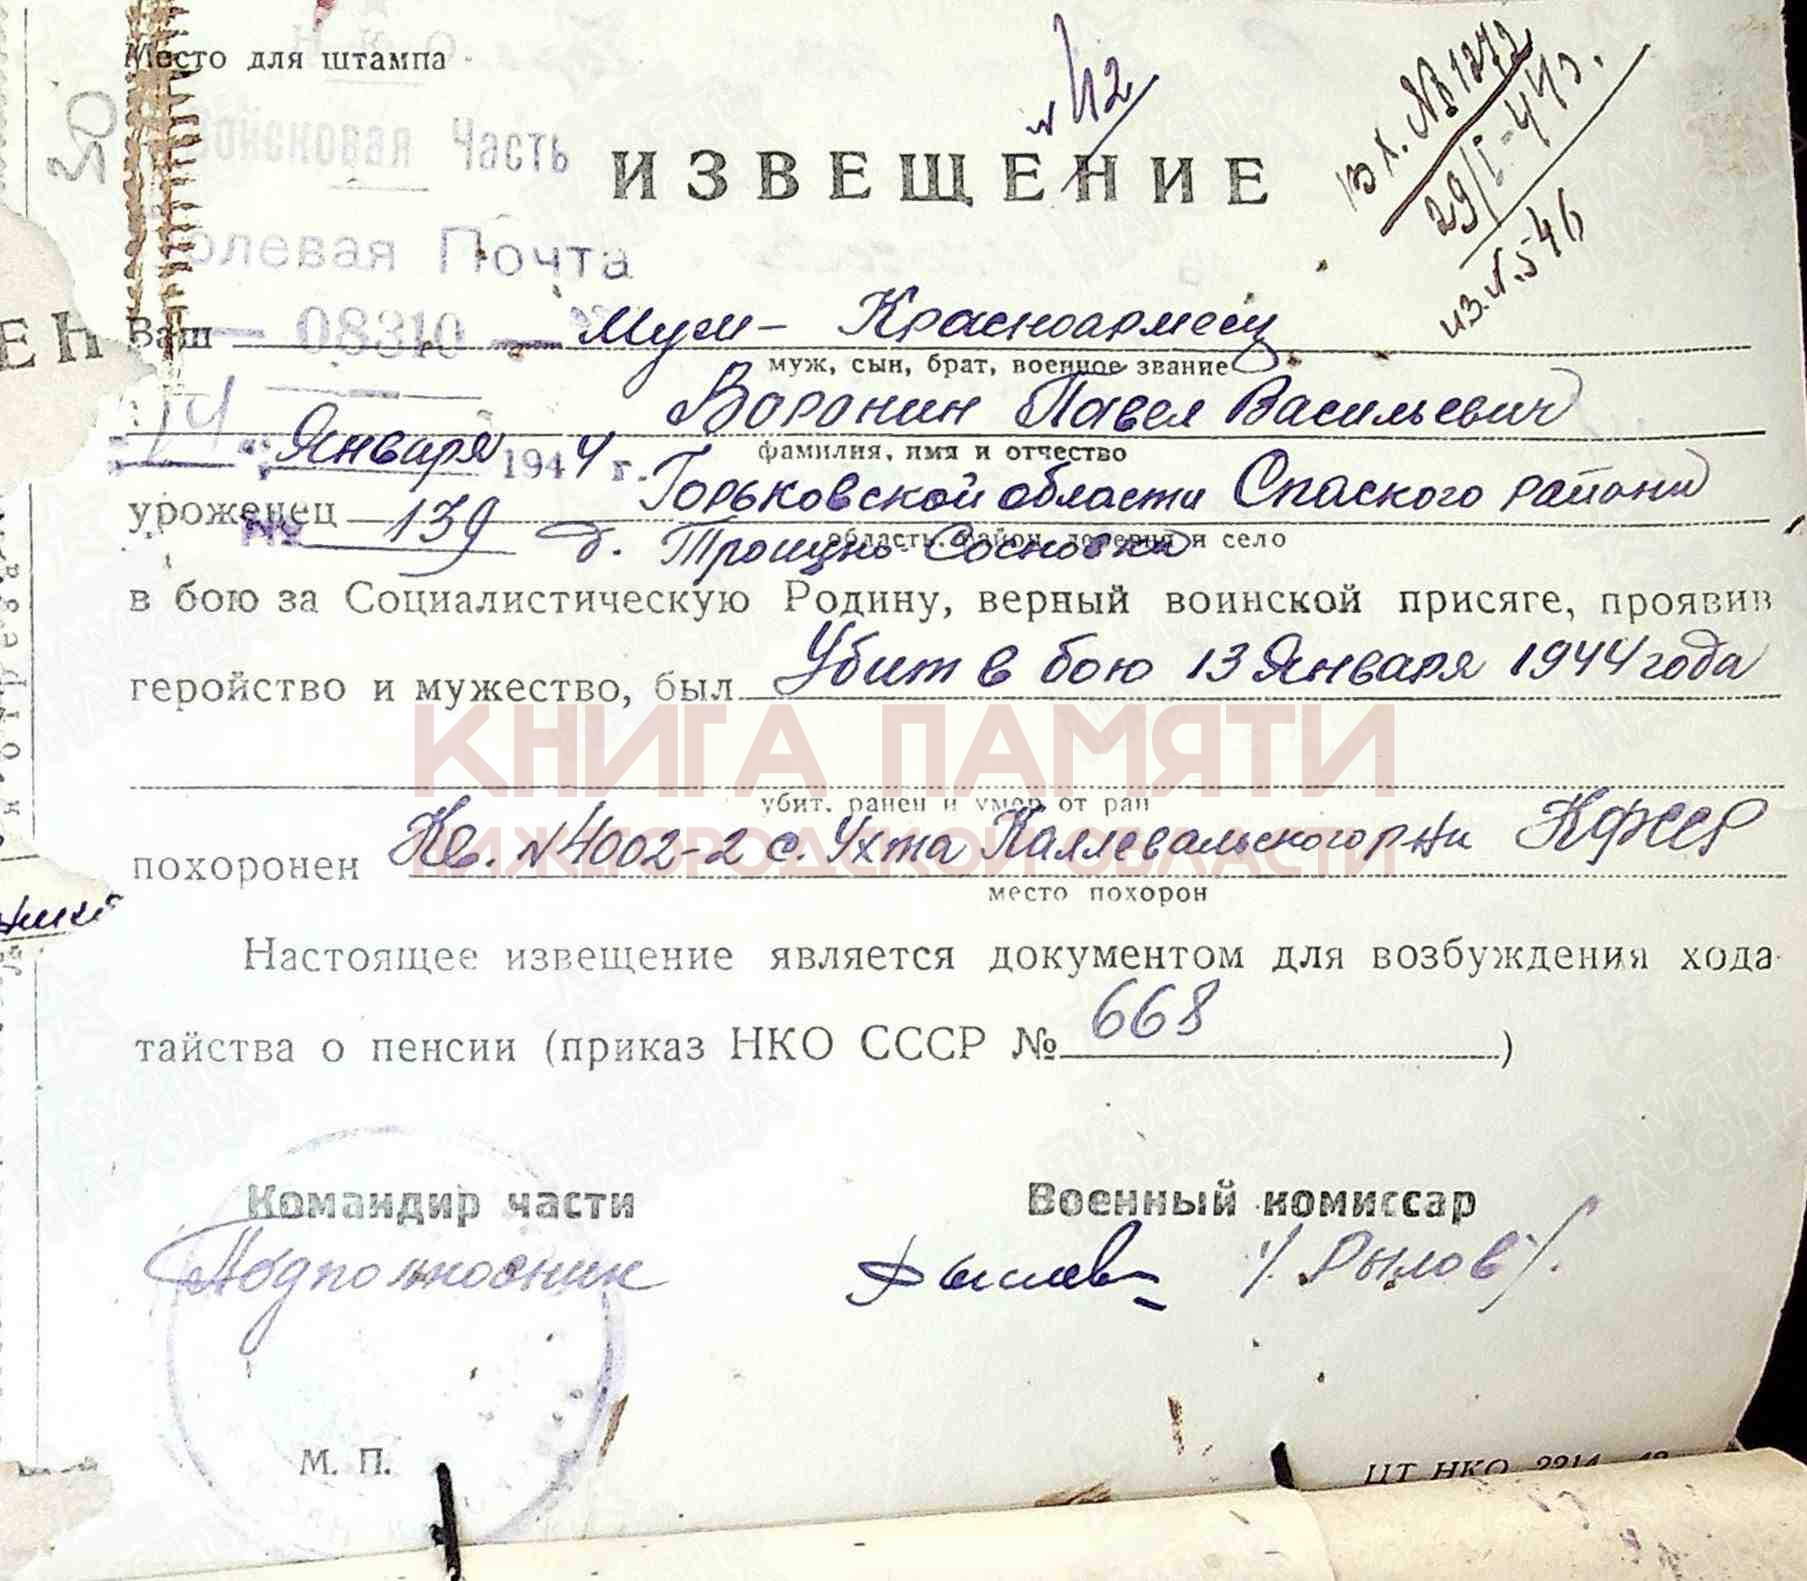 Место для штампа
Войсковая Часть
№ 112
ИЗВЕЩЕНИЕ
Вх. № 1272
29/I-44г.
из. № 546
Полевая Почта
ЕН
Ваш — 08310 — Муж - Красноармеец
муж, сын, брат, военное звание
Воронин Павел Васильевич
фамилия, имя и отчество
"14" Января 1944 г.
уроженец Горьковской области Спаского района
№ 139
д. Троицко-Сосновка
область, район, деревня и село
в бою за Социалистическую Родину, верный воинской присяге, проявив
геройство и мужество, был Убит в бою 13 Января 1944 года
КНИГА ПАМЯТИ
НИЖЕГОРОДСКОЙ ОБЛАСТИ
убит, ранен и умер от ран
похоронен Кв. № 4002-2 с. Ухта Каллевальского р-на КФССР
место похорон
Настоящее извещение является документом для возбуждения хода-
тайства о пенсии (приказ НКО СССР № 668)
Командир части
Военный комиссар
Подполковник
Рылов /Рылов/.
М. П.
ЦТ НКО 2214